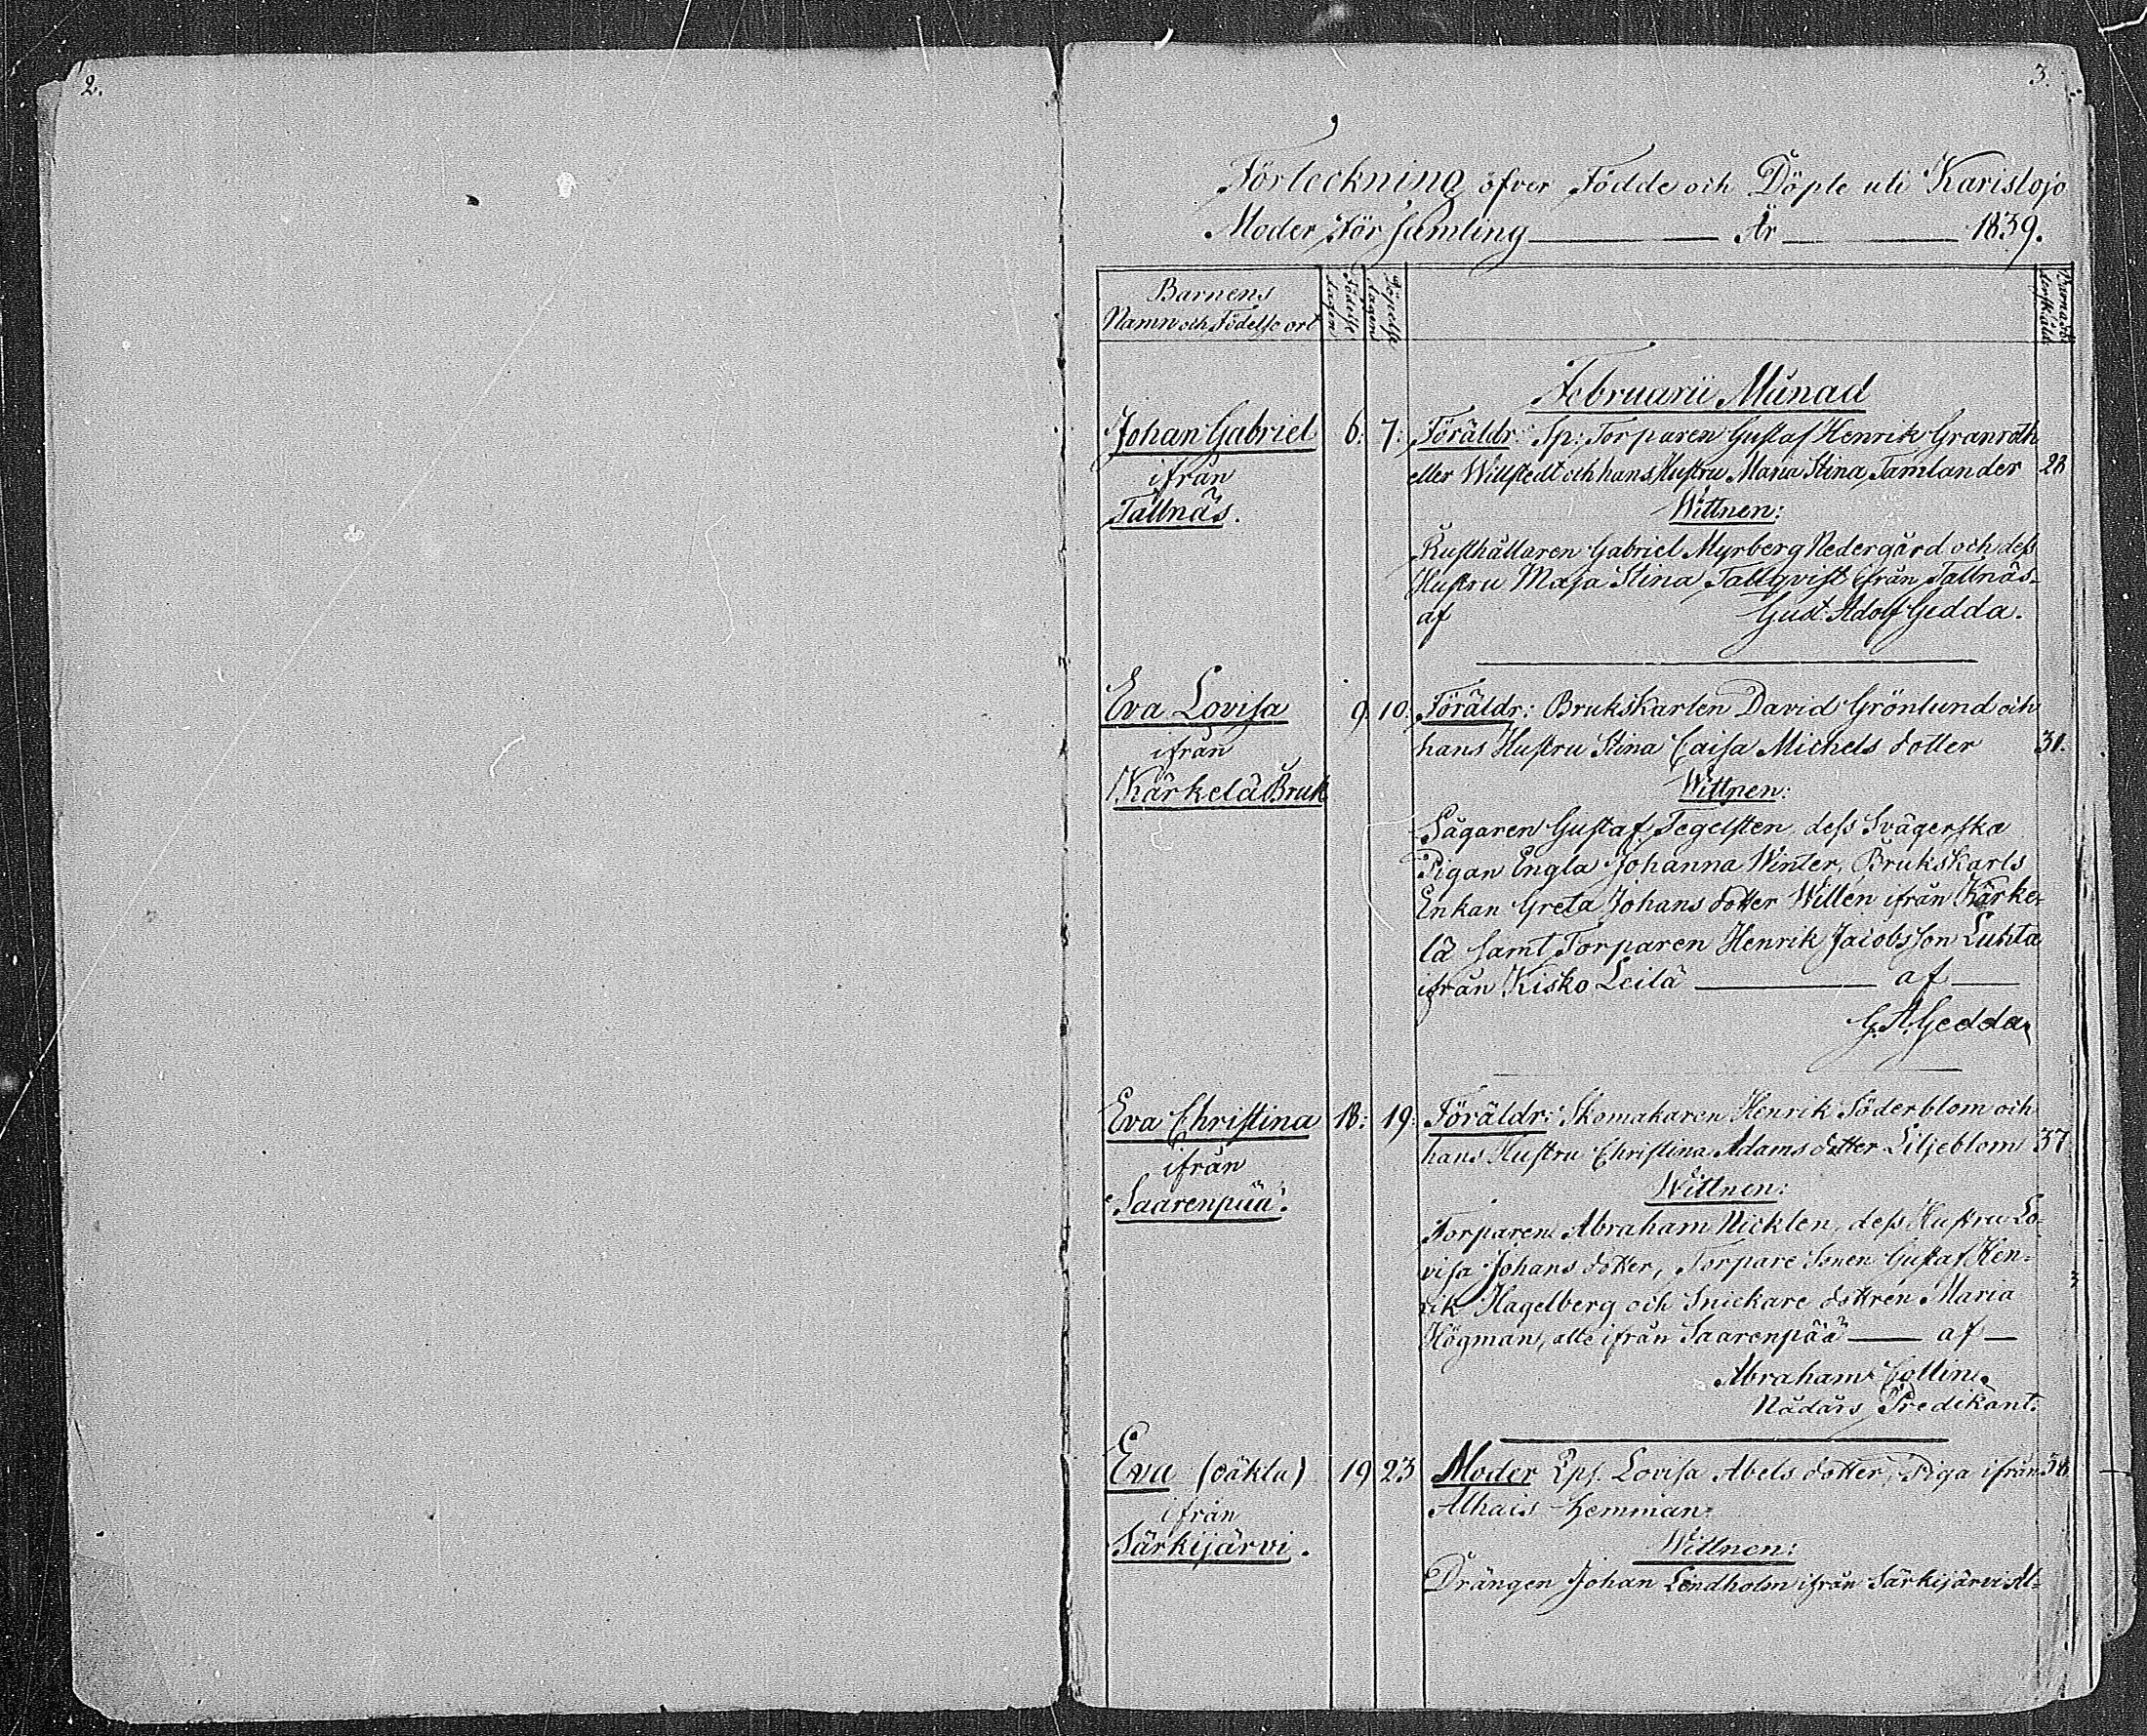 2.
3.
Förteckning öfver Födde och Döpte uti Karislojo
Moder Församling År 1839.
Barnens
Namn och Födelse ort
Födelse
dagen
Döpelse
dagen
Februarii Månad
Johan Gabriel 6: 7: Föräldr: Sp: Torparen Gustaf Henrik Granroth
ifrån eller Willstedt och hans Hustru Maria Stina Tamlander 28
Tallnäs. Wittnen:
Rusthållaren Gabriel Myrberg Nedergård och dess
Hustru Maja Stina Tallqvist ifrån Tallnäs
af Gust. Adolf Gedda.
Eva Lovisa 9. 10. Föräldr: Brukskarlen David Grönlund och
ifrån hans Hustru Stina Caisa Michels dotter 31.
Kärkelä Bruk Wittnen:
Sågaren Gustaf Tegelsten, dess Svägerska
Pigan Engla Johanna Winter, Brukskarls
Enkan Greta Johans dotter Willen ifrån Kärke-
lä samt Torparen Henrik Jacobsson Luhta
ifrån Kisko Leilä af
G. A. Gedda
Eva Christina 18: 19: Föräldr: Skomakaren Henrik Söderblom och
ifrån hans Hustru Christina Adams dotter Liljeblom 37
Saarenpää. Wittnen:
Torparen Abraham Nicklen, dess Hustru Lo-
visa Johans dotter, Torpare Sonen Gustaf Hen-
rik Hagelberg och Snickare dottren Maria
Högman, alle ifrån Saarenpää af
Abraham Collin.
Nådårs Predikant.
Eva (oäkta) 19 23 Moder Lovisa Abels dotter, Piga ifrån 38
ifrån Alhais Hemman
Särkijärvi. Wittnen:
Drängen Johan Lindholm ifrån Särkijärvi Al-